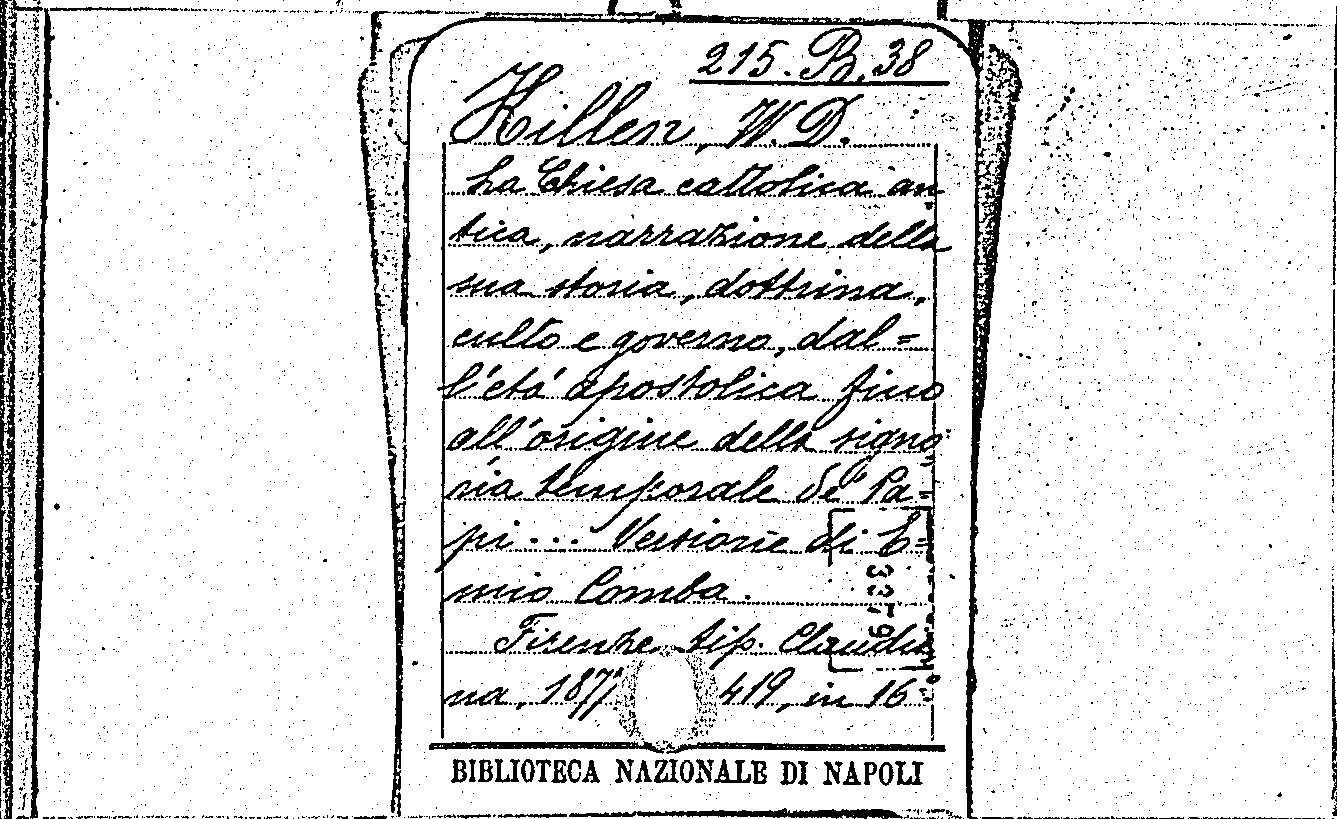 215.B.38
Killen, W.D.
La Chiesa cattolica an=
tica, narrazione della
sua storia, dottrina,
culto e governo, dal=
l'etá apostolica fino
all'origine della signo=
ria temporale de' Pa=
pi... Versione di E=
mio Comba.
Firenze, tip. Claudia
na, 187 419, in 16º
BIBLIOTECA NAZIONALE DI NAPOLI